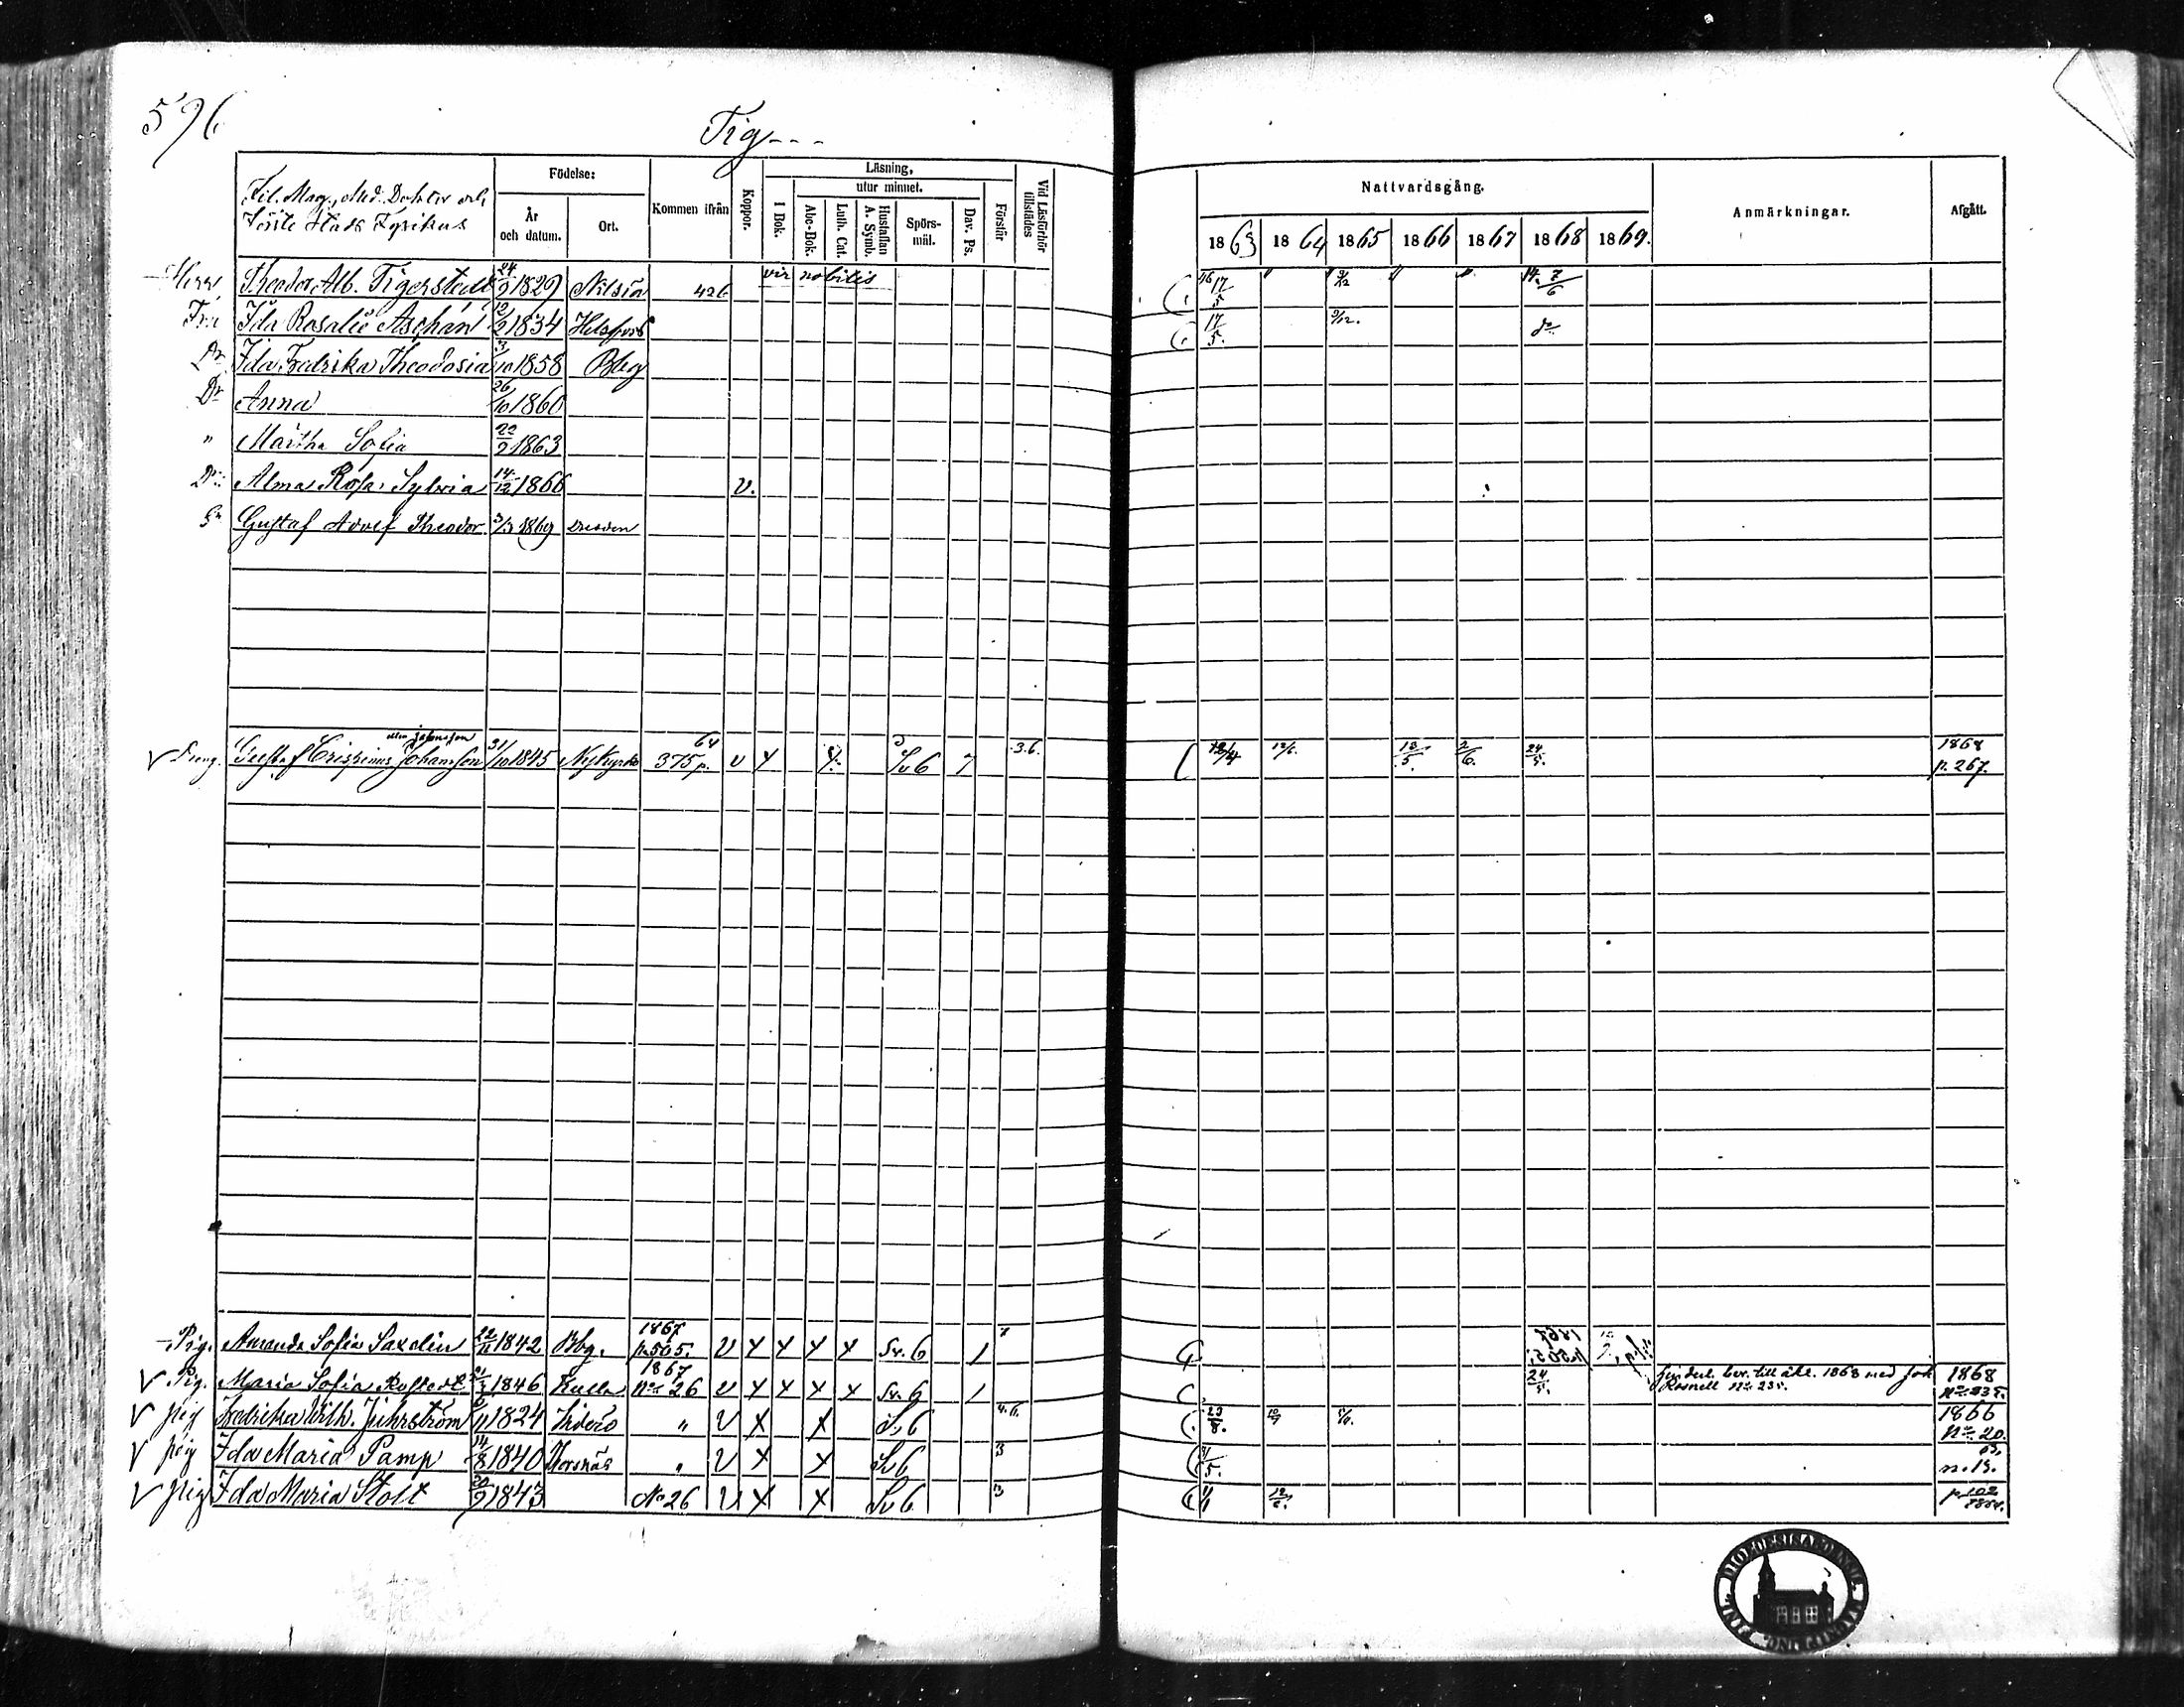 596
Tig---
Födelse:
Läsning,
utur minnet.
År och datum.
Ort.
Kommen ifrån
Koppor.
I Bok.
Abc-Bok.
Luth. Cat.
Hustaflan A. Symb.
Spörs-mål.
Dav. Ps.
Förstår
Vid Läsförhör tillstädes
Nattvardsgång.
1863 1864 1865 1866 1867 1868 1869.
Anmärkningar.
Afgått.
Fil. Mag., Med. Doktor och
Förste Stads Fysikus
Theodor Alb. Tigerstedt 24/9 1829 Nilsiä 426 vir nobilis 17/5 " 3/12 " " 7/6
Fru Ida Rosalie Aschan 12/2 1834 Helsfors 17/5. 3/12. do
Dr Ida Fredrika Theodosia 3/10 1858 Bbg
Dr Anna 26/10 1860
" Märtha Sofia 22/9 1863
Dr Alma Rosa Sylvia 14/12 1866 v.
Sn Gustaf Adolf Theodor 3/3 1869 Dresden
√ Dreng. Gustaf Crispinus Johansson 31/10 1845 Nykyrko 64 375 p. v x Sv 6 7 3.6. 12/4 12/6. 13/5. 2/6. 24/5. 1868 p. 267.
Pig. Amanda Sofia Saxelin 22/11 1842 Bbg. 1867 p.505. v x x x x Sv. 6 1 7 1867 p.505.
√ Pig. Maria Sofia 1846 Kulla 1867 No 26 v x x x x Sv. 6 1 24/5. bev. till äkt. 1868 med Rosnell No 235. 1868 No 235.
√ pig Fredrika Wilh. Juhrström 1824 " v x x Sv 6 4.6. 23/8. 1866 No 20.
√ pig Ida Maria Pamp 14/8 1840 Korsnäs " v x x Sv 6 3 /5. 63. n. 15.
√ pig Ida Maria Stolt 20/9 1843 No 26 v x x Sv 6 3 12/6. p. 102